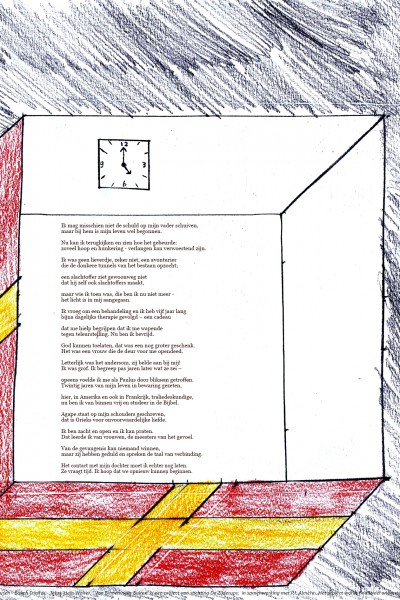 12
9
3
6
Ik mag misschien niet de schuld op mijn vader schuiven,
maar bij hem is mijn leven wel begonnen.
Nu kan ik terugkijken en zien hoe het gebeurde:
zoveel hoop en hunkering - verlangen kan verwoestend zijn.
Ik was geen lieverdje, zeker niet, een avonturier
die de donkere tunnels van het bestaan opzocht;
een slachtoffer ziet gewoonweg niet
dat hij zelf ook slachtoffers maakt,
maar wie ik toen was, die ben ik nu niet meer -
het licht is in mij aangegaan.
Ik vroeg om een behandeling en ik heb vijf jaar lang
bijna dagelijks therapie gevolgd – een cadeau
dat me hielp begrijpen dat ik me wapende
tegen teleurstelling. Nu ben ik bevrijd.
God kunnen toelaten, dat was een nog groter geschenk.
Het was een vrouw die de deur voor me opendeed.
Letterlijk was het andersom, zij belde aan bij mij!
Ik was grof. Ik begreep pas jaren later wat ze zei –
opeens voelde ik me als Paulus door bliksem getroffen.
Twintig jaren van mijn leven in bewaring gezeten,
hier, in Amerika en ook in Frankrijk, tralledeskundige,
nu ben ik van binnen vrij en studeer in de Bijbel.
Agape staat op mijn schouders geschreven,
dat is Grieks voor onvoorwaardelijke liefde.
Ik ben zacht en open en ik kan praten.
Dat leerde ik van vrouwen, de meesters van het gevoel.
Van de gevangenis kan niemand winnen,
maar zij hebben geduld en spreken de taal van verbinding.
Het contact met mijn dochter moet ik echter nog laten.
Ze vraagt tijd. Ik hoop dat we opnieuw kunnen beginnen.